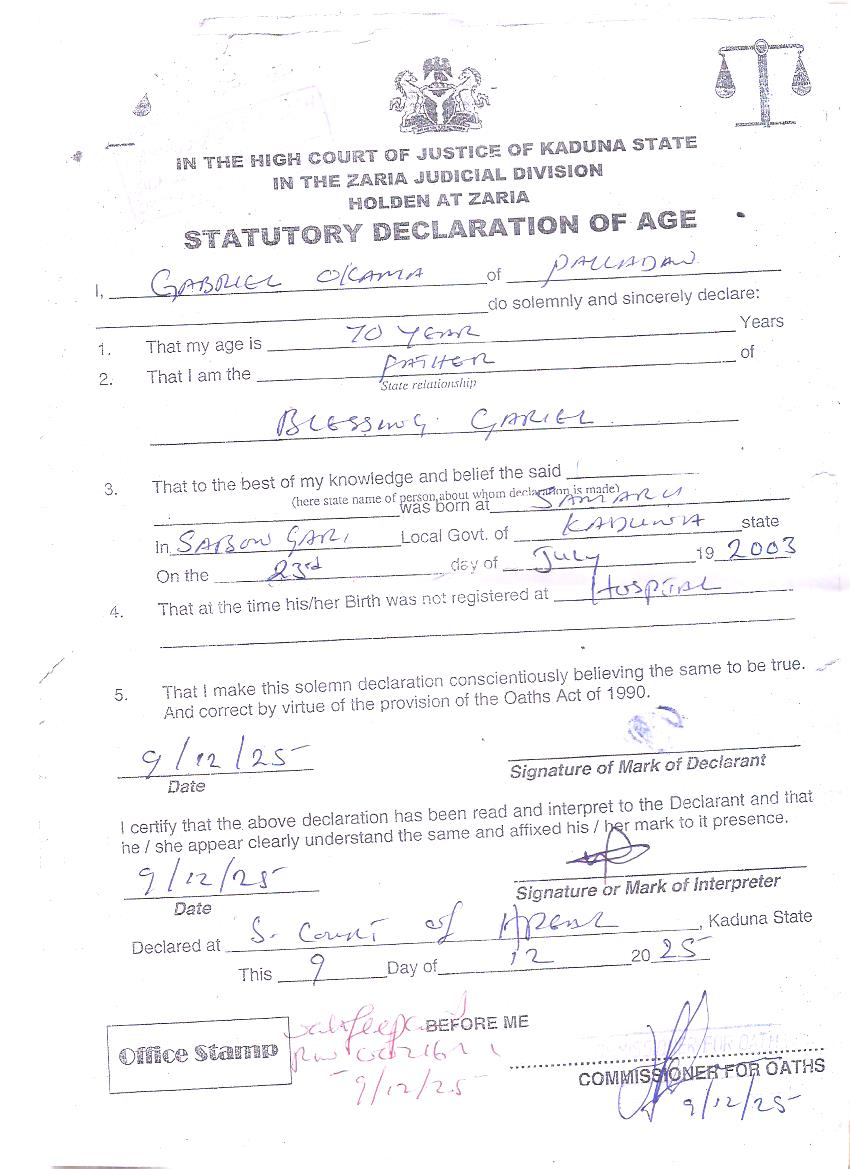 IN THE HIGH COURT OF JUSTICE OF KADUNA STATE
IN THE ZARIA JUDICIAL DIVISION
HOLDEN AT ZARIA
STATUTORY DECLARATION OF AGE
I, GABRIEL OKAMA of PALLADAN
do solemnly and sincerely declare:
1. That my age is 70 YEAR Years
2. That I am the FATHER of
State relationship
BLESSING GARIEL
3. That to the best of my knowledge and belief the said
(here state name of person about whom declaration is made)
was born at SAMARU
In SABON GARI Local Govt. of KADUNA state
On the 23rd day of July 19 2003
4. That at the time his/her Birth was not registered at Hospital
5. That I make this solemn declaration conscientiously believing the same to be true.
And correct by virtue of the provision of the Oaths Act of 1990.
9/12/25
Date
Signature of Mark of Declarant
I certify that the above declaration has been read and interpret to the Declarant and that
he / she appear clearly understand the same and affixed his / her mark to it presence.
9/12/25
Date
Signature or Mark of Interpreter
Declared at S. Court of APEAL, Kaduna State
This 9 Day of 12 20 25
Office Stamp
BEFORE ME
9/12/25
COMMISSIONER FOR OATHS
9/12/25